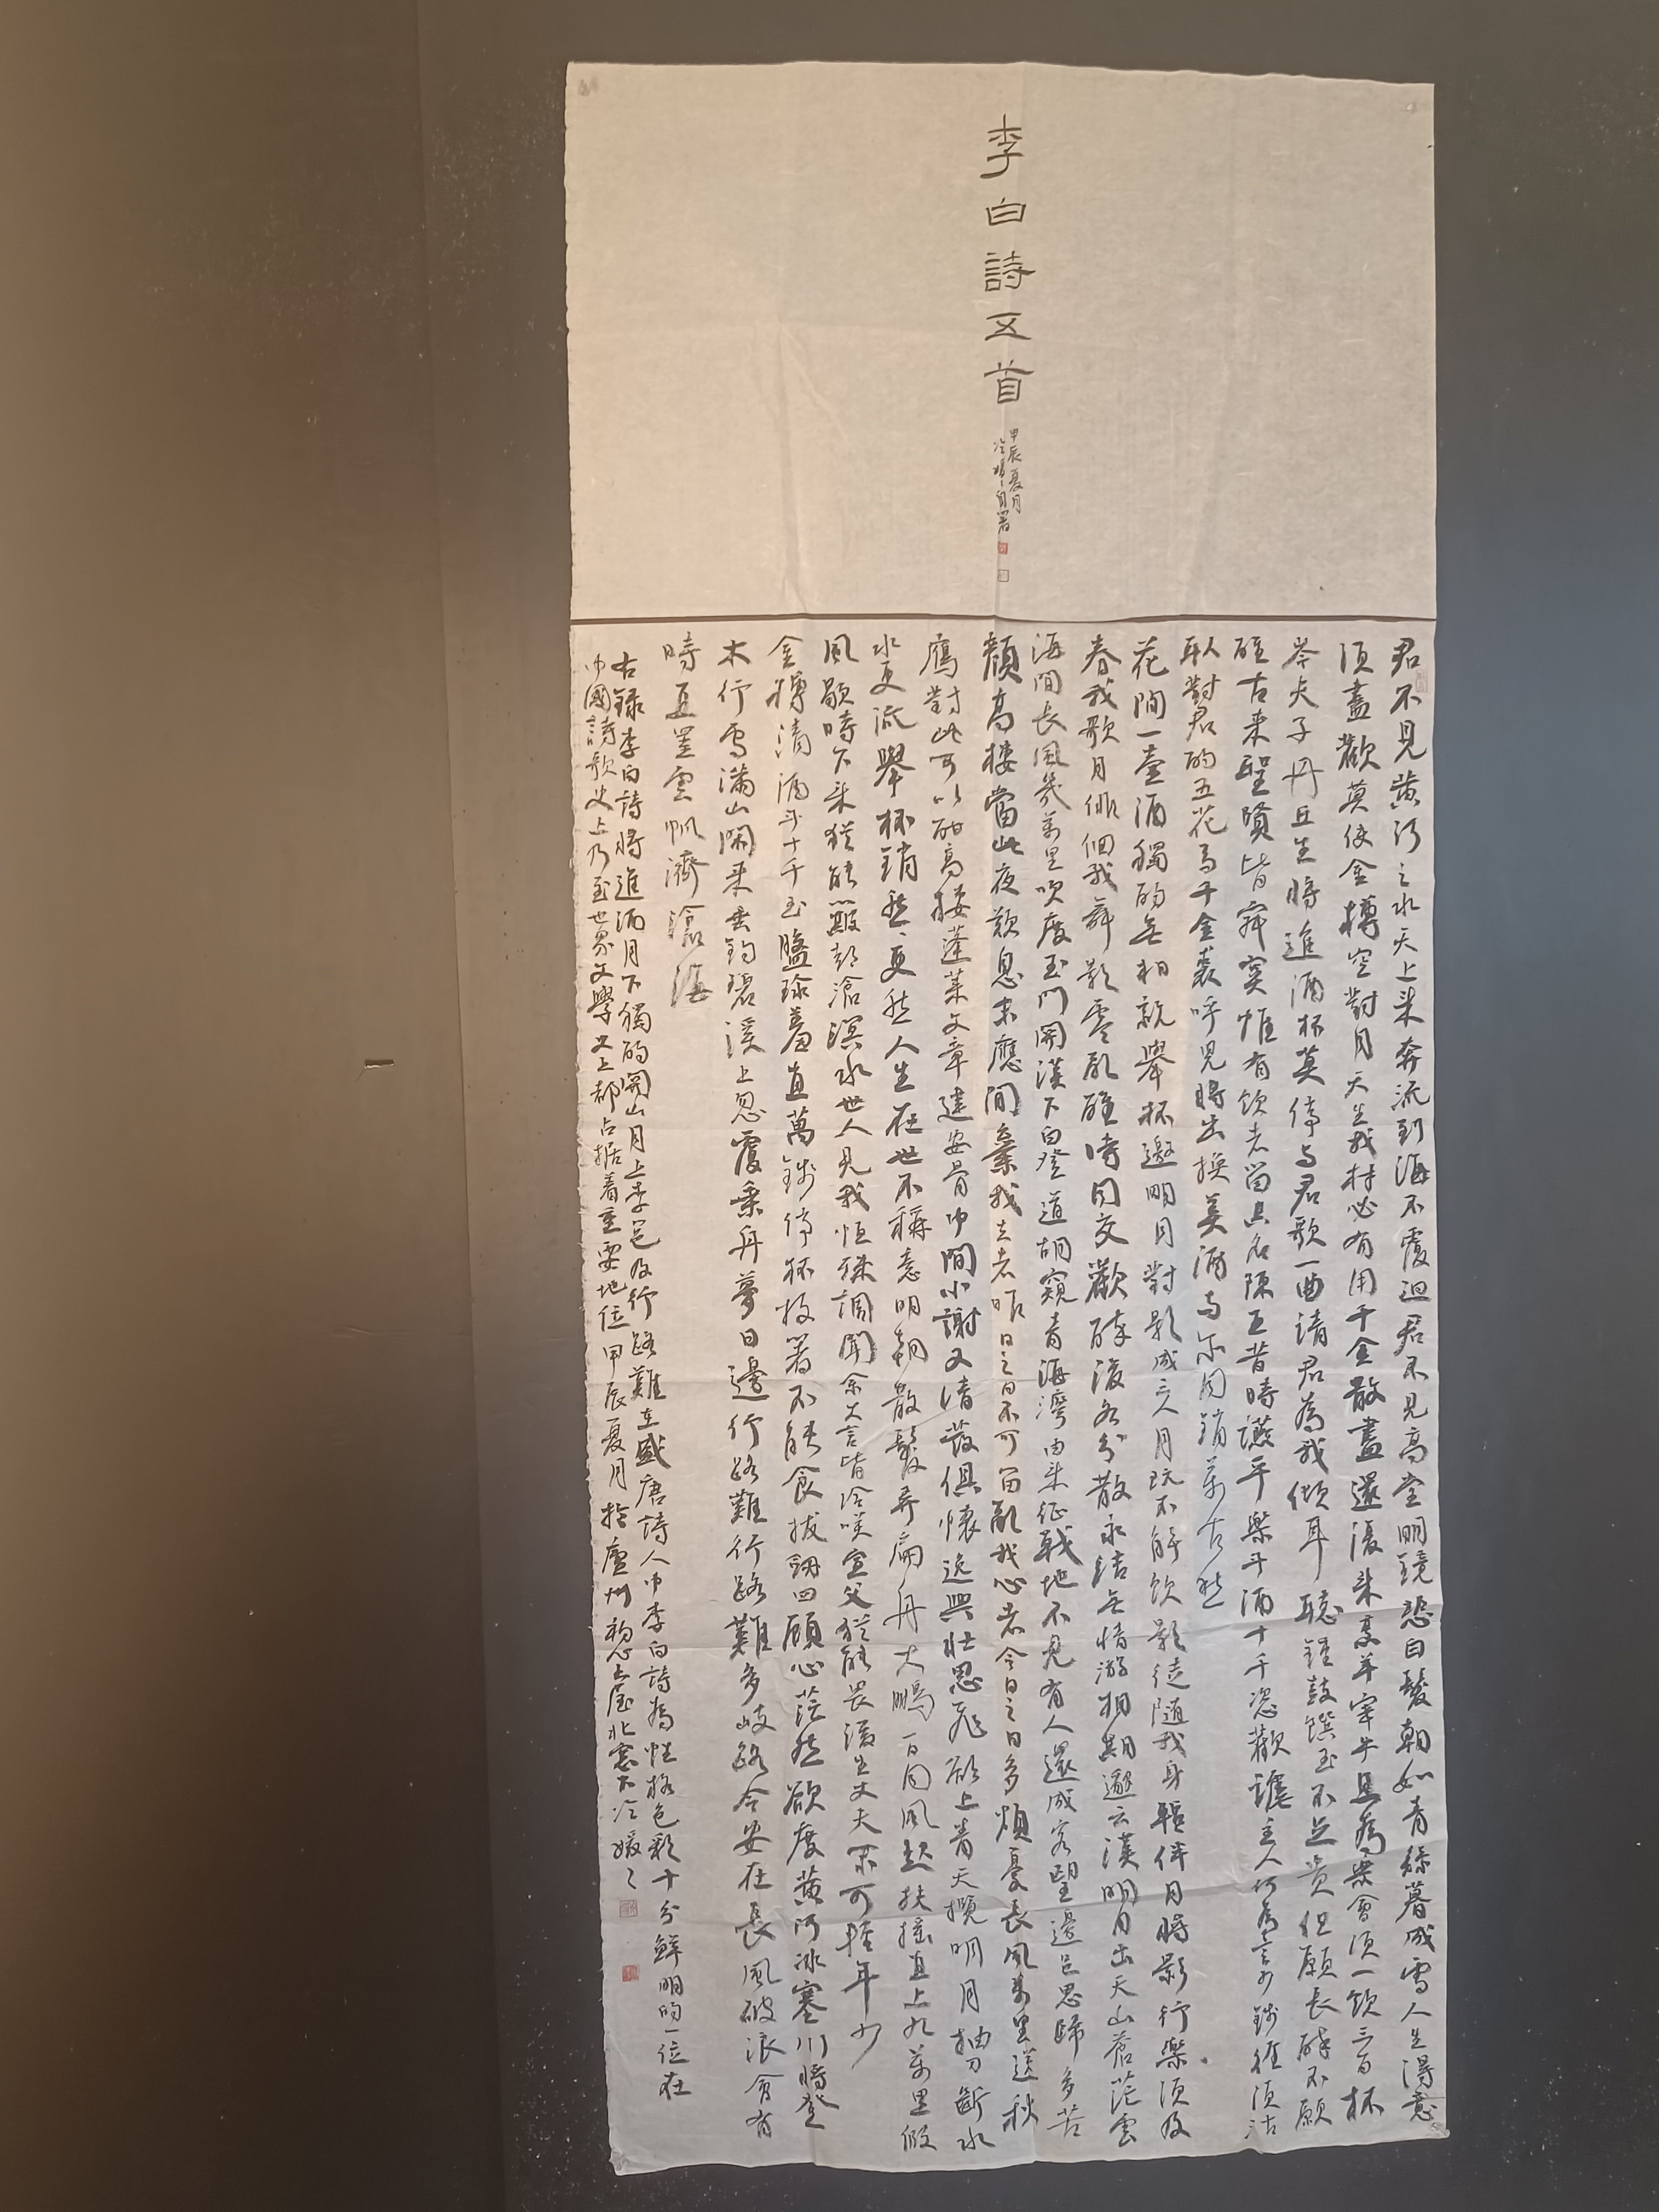 李白詩五首
甲辰夏月
冷媛自署
君不見黄河之水天上来奔流到海不復迴君不見高堂明鏡悲白髮朝如青絲暮成雪人生得意
須盡歡莫使金樽空對月天生我材必有用千金散盡還復来烹羊宰牛且為樂會須一飲三百杯
岑夫子丹丘生將進酒杯莫停与君歌一曲請君為我傾耳聽鐘鼓饌玉不足貴但願長醉不願
醒古来聖賢皆寂寞惟有飲者留其名陳王昔時讌平樂斗酒十千恣歡謔主人何為言少錢徑須沽
取對君酌五花馬千金裘呼兒將出換美酒与尔同銷萬古愁
花間一壺酒獨酌無相親舉杯邀明月對影成三人月既不解飲影徒隨我身暫伴月將影行樂須及
春我歌月徘徊我舞影零亂醒時同交歡醉後各分散永結無情游相期邈云漢明月出天山蒼茫雲
海間長風幾萬里吹度玉門關漢下白登道胡窺青海灣由来征戰地不見有人還戍客望邊邑思歸多苦
顏高樓當此夜歎息未應閒棄我去者昨日之日不可留亂我心者今日之日多煩憂長風萬里送秋
鴈對此可以酣高樓蓬萊文章建安骨中間小謝又清發俱懷逸興壯思飛欲上青天攬明月抽刀斷水
水更流舉杯銷愁愁更愁人生在世不稱意明朝散髮弄扁舟大鵬一日同風起扶搖直上九萬里假
風歇時下来猶能簸却滄溟水世人見我恒殊調聞余大言皆冷笑宣父猶能畏後生丈夫未可輕年少
金樽清酒斗十千玉盤珍羞直萬錢停杯投箸不能食拔劍四顧心茫然欲度黄河冰塞川將登
太行雪滿山閑来垂釣碧溪上忽復乘舟夢日邊行路難行路難多岐路今安在長風破浪會有
時直挂雲帆濟滄海
右録李白詩將進酒月下獨酌關山月上李邕及行路難在盛唐詩人中李白詩為性格色彩十分鮮明的一位在
中國詩歌史上乃至世界文學史上都占据着重要地位甲辰夏月於廬州初心土屋北窓下冷媛